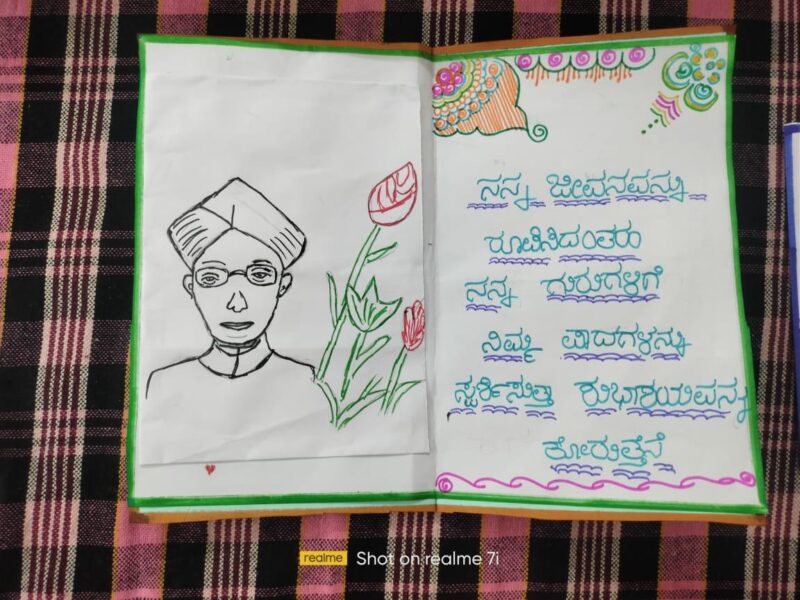 ನನ್ನ ಜೀವನವನ್ನು
ರೂಪಿಸಿದಂತಹ
ನನ್ನ ಗುರುಗಳಿಗೆ
ನಿಮ್ಮ ಪಾದಗಳನ್ನು
ಸ್ಪರ್ಶಿಸುತ್ತಾ ಶುಭಾಶಯವನ್ನು
ಕೋರುತ್ತೇನೆ
realme Shot on realme 7i